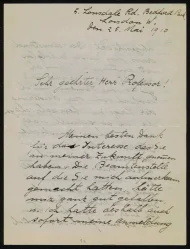 5 Lonsdale Rd. Bedford Park
London W.
den 25. Mai 1910
Sehr geehrter Herr Professor!
Meinen besten Dank
für das Interesse das Sie
an meiner Zukunft genommen
haben. Die
auf die Sie mich aufmerksam
gemacht hatten, hätte
mir ganz gut gefallen
u. ich hatte deshalb auch
sofort meine Anmeldung